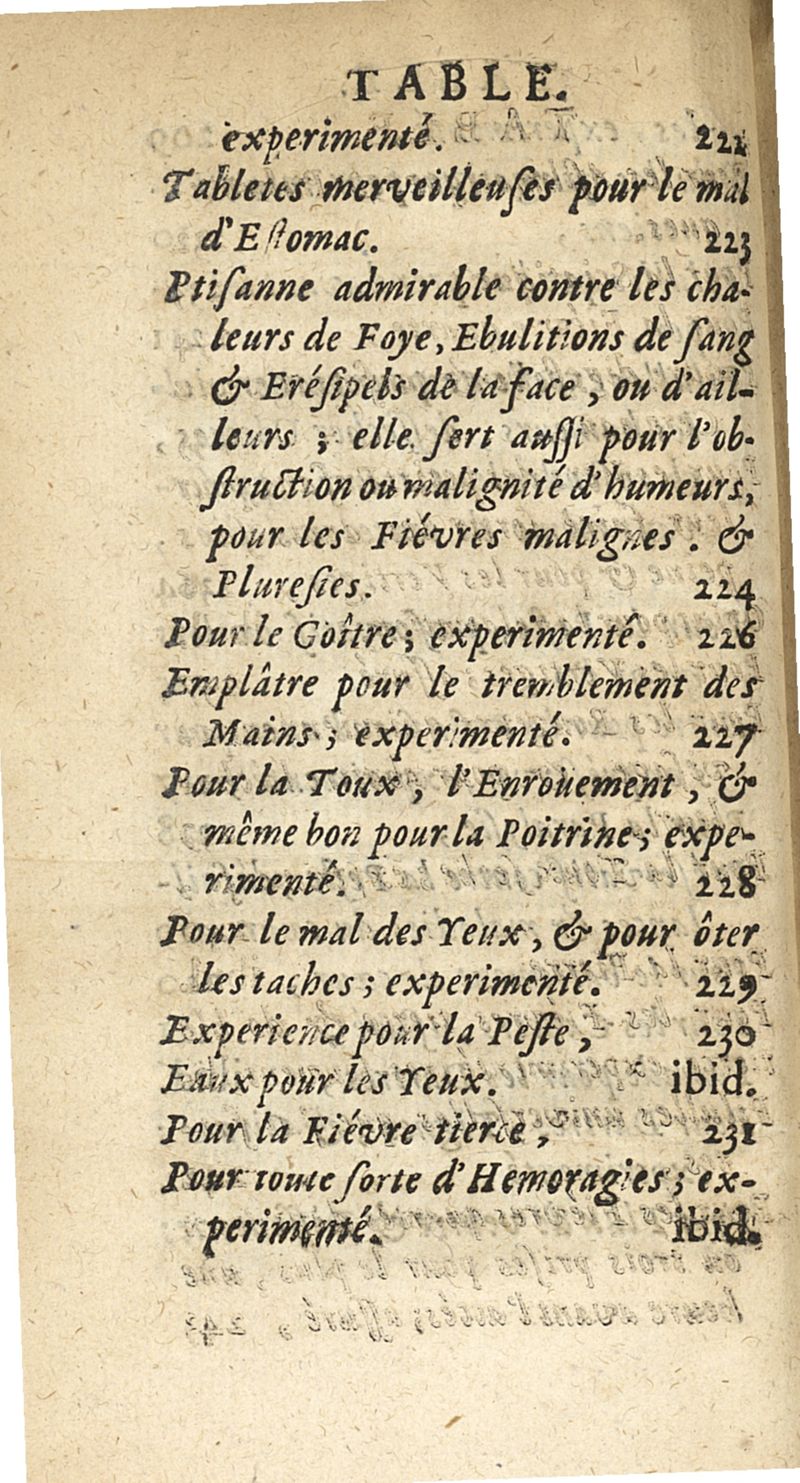 TABLE.
experimenté. 221
Tabletes merveilleuſes pour le mal
d'Eſtomac. 223
Ptiſanne admirable contre les cha-
leurs de Foye, Ebulitions de ſang
& Eréſipels de la face, ou d'ail-
leurs ; elle ſert auſſi pour l'ob-
ſtruction ou malignité d'humeurs,
pour les Fiévres malignes. &
Plureſies. 224
Pour le Goîtré ; experimenté. 226
Emplâtre pour le tremblement des
Mains ; experimenté. 227
Pour la Toux, l'Enroüement, &
même bon pour la Poitrine ; expe-
rimenté. 228
Pour le mal des Yeux, & pour ôter
les taches ; experimenté. 229
Experience pour la Peſte, 230
Eaux pour les Yeux. ibid.
Pour la Fiévre tierce, 231
Pour toute ſorte d'Hemoragies ; ex-
perimenté. ibid.